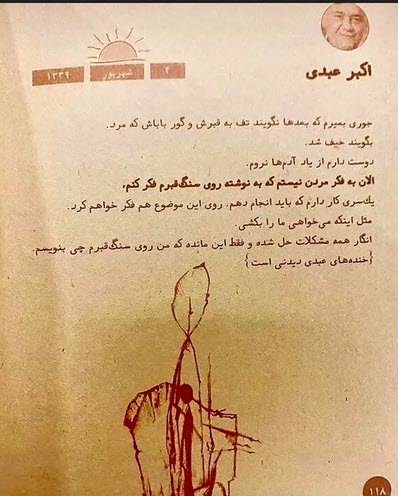 اکبر عبدی
۲ شهریور ۱۳۳۹
جوری بمیرم که بعدها نگویند تف به قبرش و گور باباش که مرد.
بگویند حیف شد.
دوست دارم از یاد آدم‌ها نروم.
الان به فکر مردن نیستم که به نوشته روی سنگ‌قبرم فکر کنم.
یک‌سری کار دارم که باید انجام دهم. روی این موضوع هم فکر خواهم کرد.
مثل اینکه می‌خواهی ما را بکشی.
انگار همه مشکلات حل شده و فقط این مانده که من روی سنگ‌قبرم چی بنویسم.
{خنده‌های عبدی دیدنی است}
۱۱۸